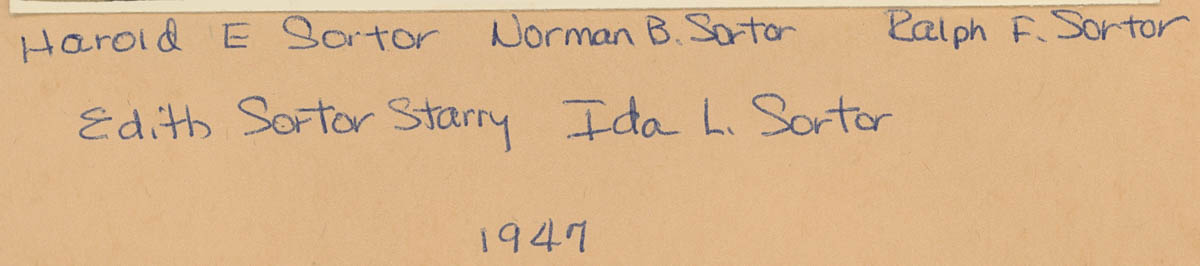 Harold E Sortor Norman B. Sortor Ralph F. Sortor
Edith Sortor Starry Ida L. Sortor
1947